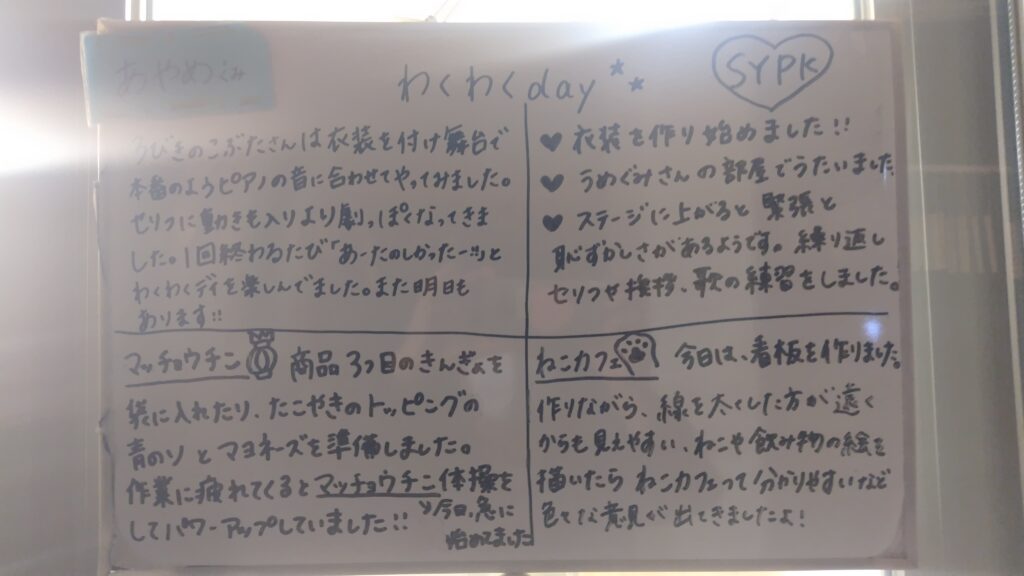 あやめぐみ
わくわくday
SYPK
3びきのこぶたさんは衣装を付け舞台で
本番のようピアノの音に合わせてやってみました。
セリフに動きも入りより劇っぽくなってきま
した。1回終わるたび「あーたのしかったー!!」と
わくわくデイを楽しんでました。また明日も
あります!!
♥ 衣装を作り始めました!!
♥ うめぐみさんの部屋でうたいました
♥ ステージに上がると緊張と
恥ずかしさがあるようです。繰り返し
セリフや挨拶、歌の練習をしました。
マッチョウチン 商品3つ目のきんぎょを
袋に入れたり、たこやきのトッピングの
青のりとマヨネーズを準備しました。
作業に疲れてくるとマッチョウチン体操を
してパワーアップしていました!!
今日、急に
始めてました
ねこカフェ 今日は、看板を作りました。
作りながら、線を太くした方が遠く
からも見えやすい、ねこや飲み物の絵を
描いたらねこカフェって分かりやすいなど
色々な意見が出てきましたよ!